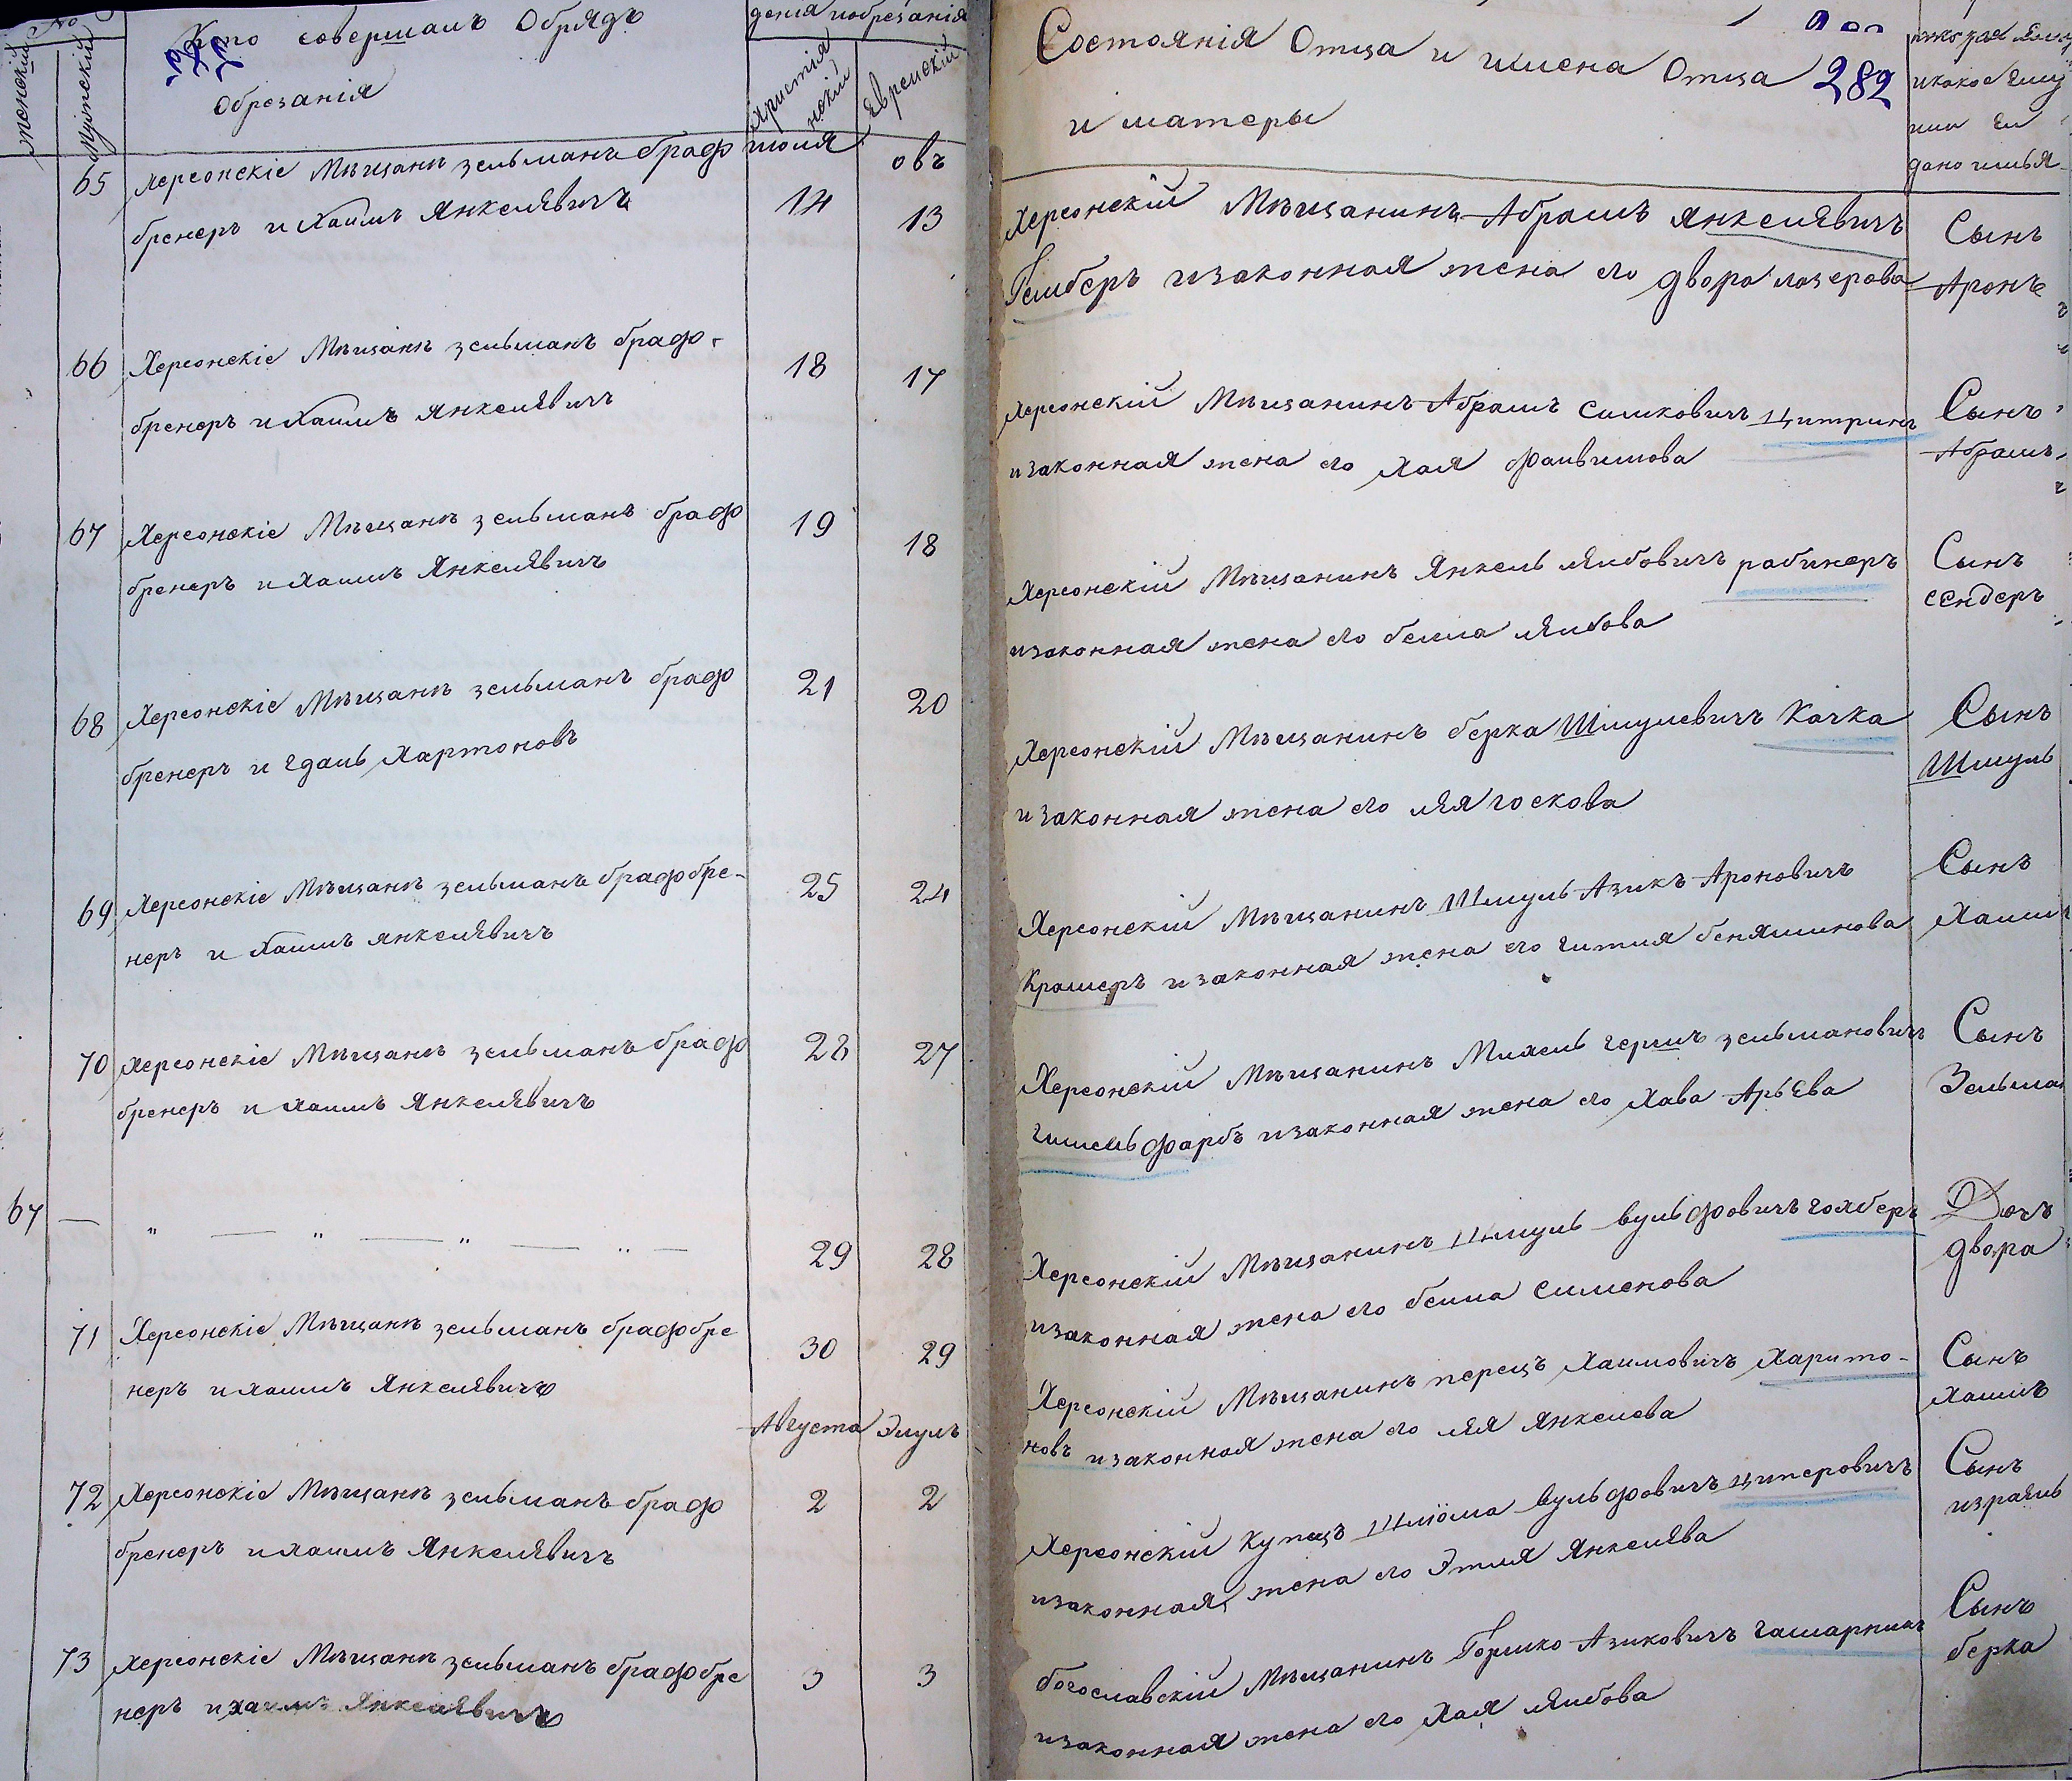 №
женскій
Мужскій
Кто совершалъ Обрядъ
Обрезанія
христіа
нскій
Еврейскій
65 Херсонскіе Мѣщанѣ зельманъ брафо июля овъ
бренеръ и Хаимъ Янкелявичъ 14 13
66 Херсонскіе Мѣщанѣ зельманъ брафо- 18 17
бренеръ и Хаимъ Янкелявичъ
67 Херсонскіе Мѣщанѣ зельманъ брафо 19 18
бренеръ и Хаимъ Янкелявичъ
68 Херсонскіе Мѣщанѣ зельманъ брафо 21 20
бренеръ и гдаль Хартоновъ
69 Херсонскіе Мѣщанѣ зельманъ брафобре- 25 24
неръ и Хаимъ Янкелявичъ
70 Херсонскіе Мѣщанѣ зельманъ брафо 28 27
бренеръ и Хаимъ Янкелявичъ
67 — „ — „ — „ — „ — 29 28
71 Херсонскіе Мѣщанѣ зельманъ брафобре 30 29
неръ и хаимъ Янкелявичъ
Августа Элулъ
72 Херсонскіе Мѣщанѣ зельманъ брафо 2 2
бренеръ и хаимъ Янкелявичъ
73 Херсонскіе Мѣщанѣ зельманъ брафобре 3 3
неръ и хаимъ Янкелявичъ
Состоянія Отца и имена Отца 282
и матеры
какое ему
или ей
дано имья
Херсонскій Мѣщанинъ Абрамъ Янкелявичъ Сынъ
Гелберъ изаконная жена его двора лазерова Аронъ
Херсонскій Мѣщанинъ Абрамъ Симковичъ Цитринъ Сынъ
изаконная жена его Хая Фаивишова Абрамъ
Херсонскій Мѣщанинъ Янкель Лейбовичъ рабинеръ Сынъ
изаконная жена его бейла Лейбова сендеръ
Херсонскій Мѣщанинъ берка Шмулевичъ Качка Сынъ
изаконная жена его лея госкова Шмуль
Херсонскій Мѣщанинъ Шмуль Азикъ Ароновичъ Сынъ
Крамеръ изаконная жена его гитля беняминова Хаимъ
Херсонскій Мѣщанинъ Михель гершъ зельмановичъ Сынъ
гимельфарбъ изаконная жена его Хава Арьева Зельман
Херсонскій Мѣщанинъ Шмуль вульфовичъ голберъ Дочъ
изаконная жена его бейла Сименова двора
Херсонскій Мѣщанинъ перецъ Хаимовичъ Харито- Сынъ
новъ изаконная жена его лея Янкелева Хаимъ
Херсонскій Купецъ Шліома вульфовичъ циперовичъ Сынъ
изаконная жена его Этля Янкелява израель
богославскій Мѣщанинъ Гершко Азиковичъ Сынъ
изаконная жена его Хая Лейбова берка